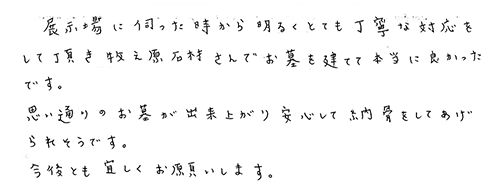 展示場に伺った時から明るくとても丁寧な対応を
して頂き牧之原石材さんでお墓を建てて本当に良かった
です。
思い通りのお墓が出来上がり安心して納骨をしてあげ
られそうです。
今後とも宜しくお願いします。